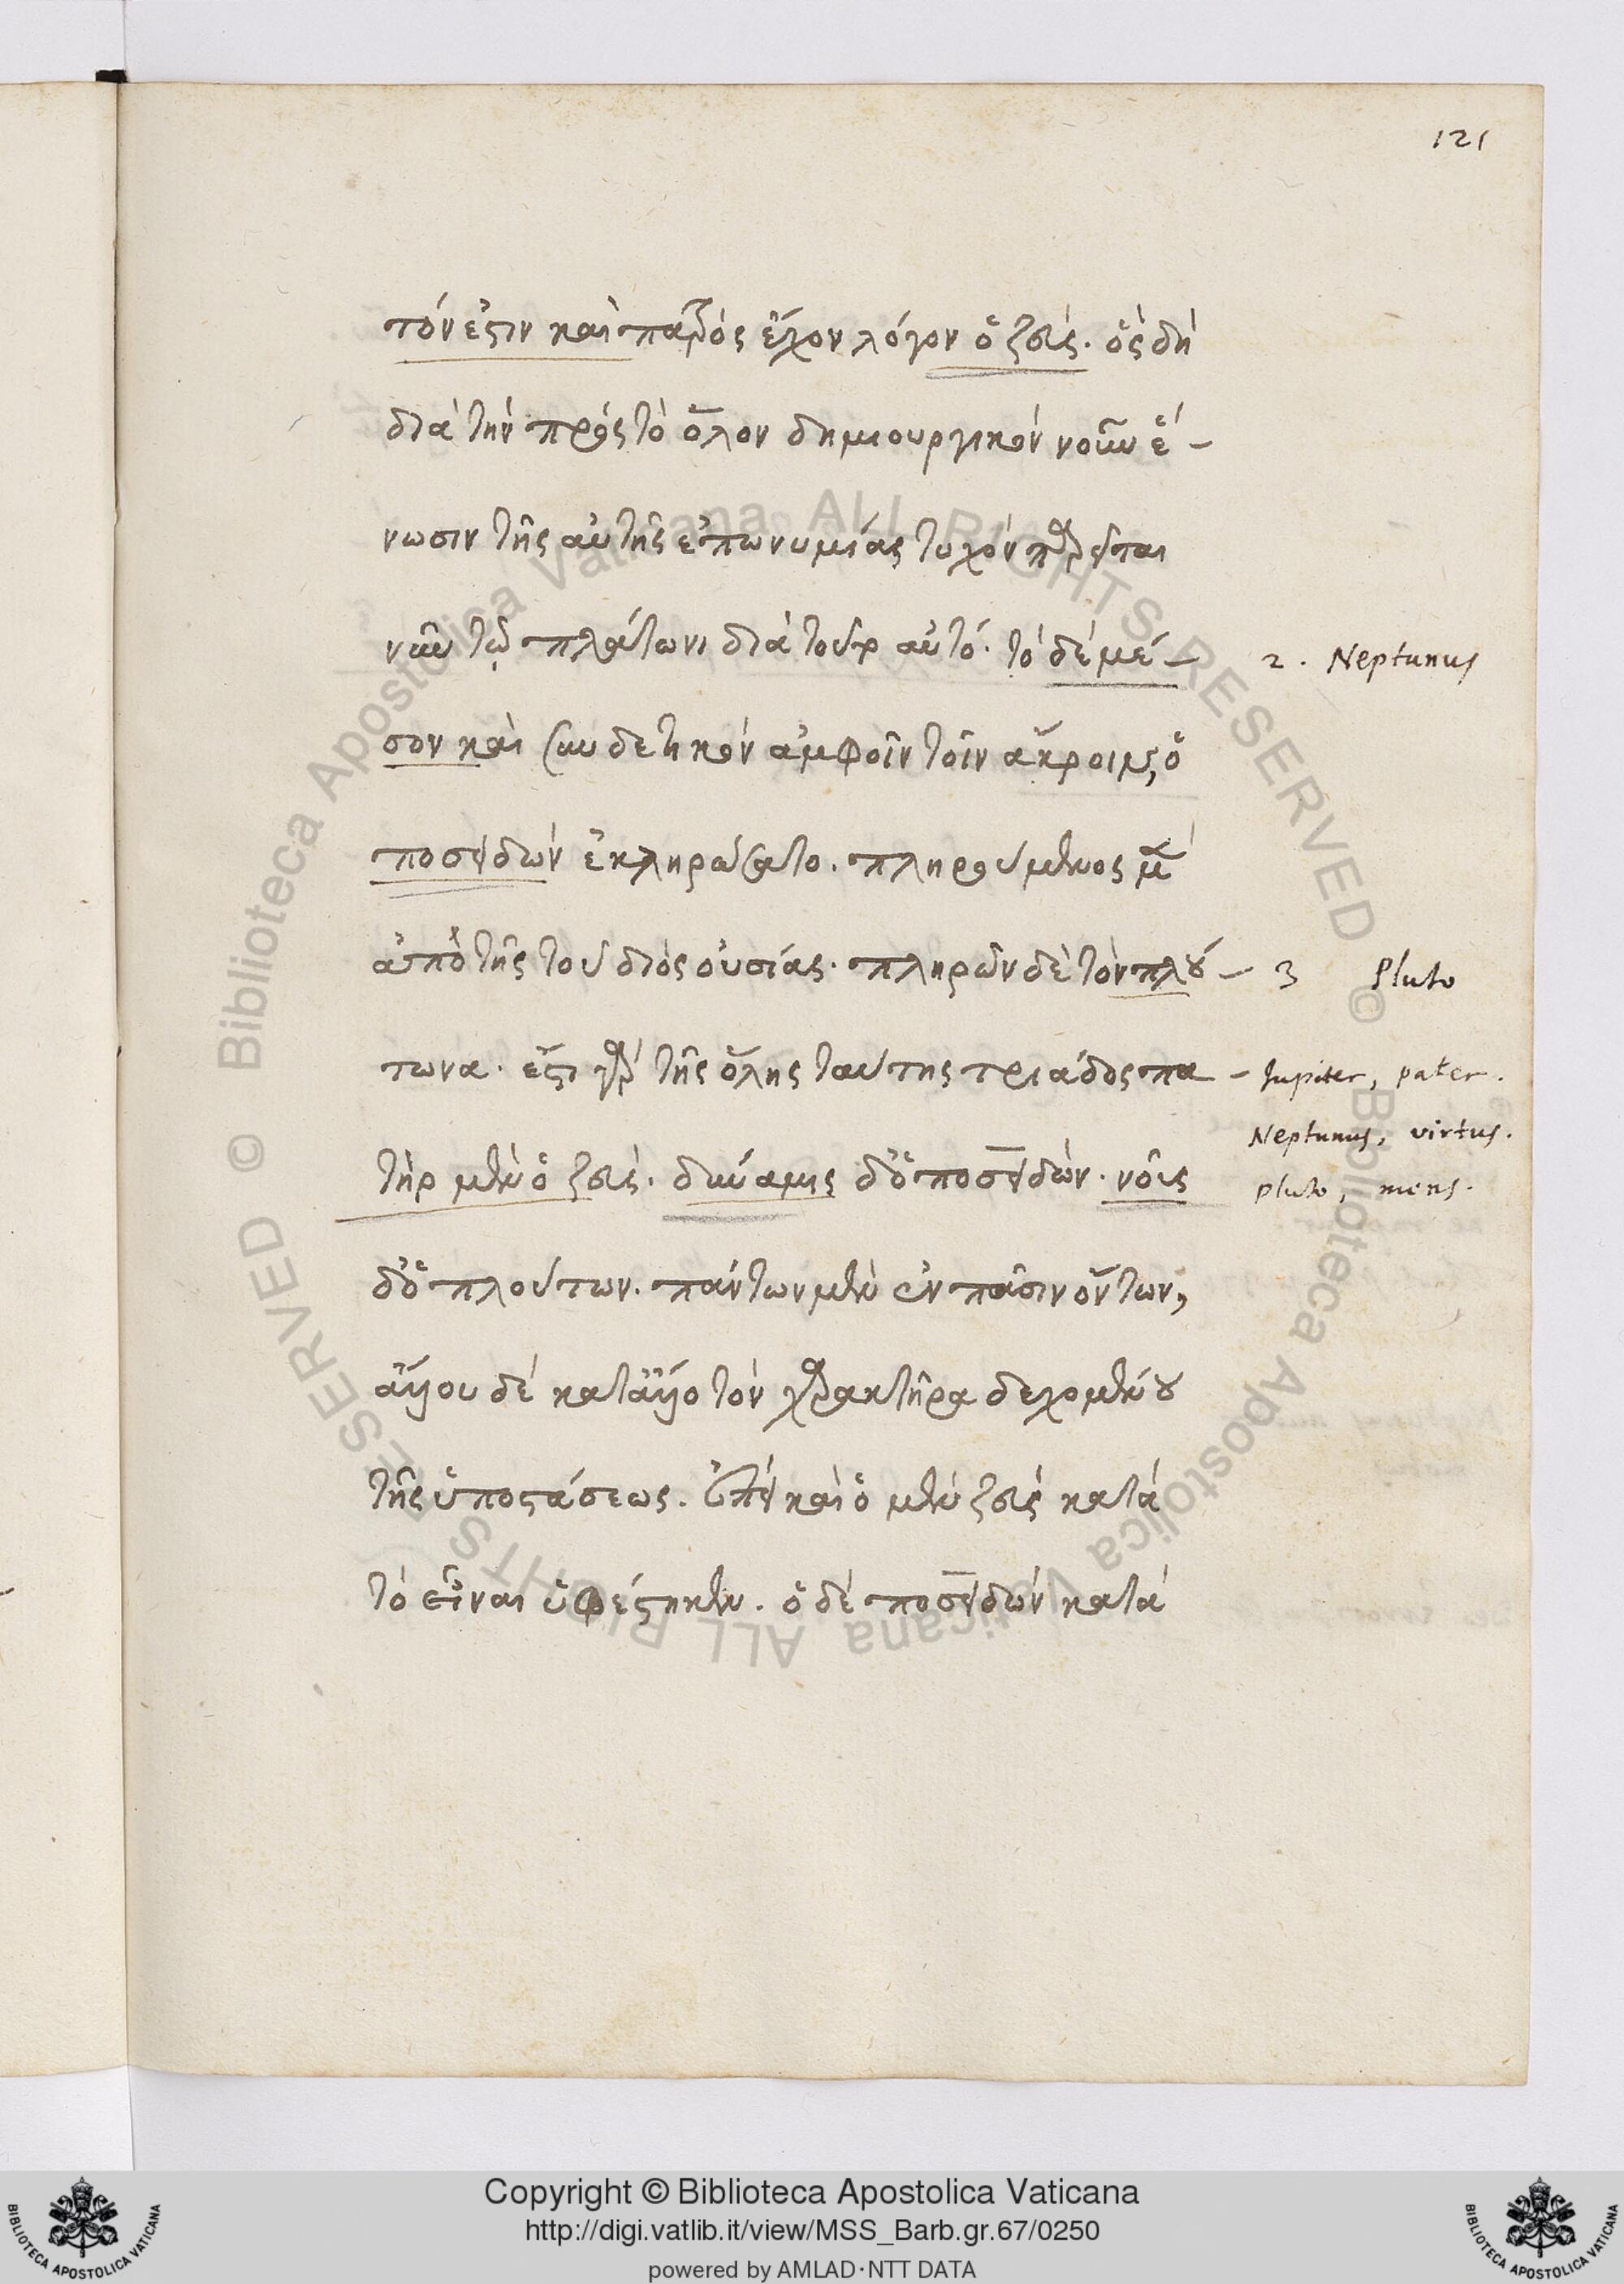 121
τόν ἐστιν καὶ πατρὸς ἔχον λόγον ὁ ζεύς. ὃς δὴ
διὰ τὴν πρὸς τὸ ὅλον δημιουργικὸν νοῦν ἕ-
νωσιν τῆς αὐτῆς ἐπωνυμίας τυχὸν
νῦν τῷ πλάτωνι διὰ τοῦτ αὐτό. τὸ δὲ μέ-
2. Neptunus
σον καὶ συνδετικὸν ἀμφοῖν τοῖν ἄκροιν, ὁ
ποσειδῶν ἐκληρώσατο. πληρούμενος μὲν
ἀπὸ τῆς τοῦ διὸς οὐσίας. πληρῶν δὲ τὸν πλού-
3 Pluto
τωνα. ἔστι γὰρ τῆς ὅλης ταύτης τριάδος πα-
Jupiter, pater.
Neptunus, virtus.
τὴρ μὲν ὁ ζεύς. δύναμις δ' ὁ ποσειδῶν. νοῦς
Pluto, mens.
δ' ὁ πλούτων. πάντων μὲν ἐν πᾶσιν ὄντων,
ἄλλου δὲ κατ' ἄλλο τὸν χαρακτῆρα δεχομένου
τῆς ὑποστάσεως. ἐπεὶ καὶ ὁ μὲν ζεὺς κατὰ
τὸ εἶναι ὑφέστηκεν. ὁ δὲ ποσειδῶν κατὰ
Copyright © Biblioteca Apostolica Vaticana
http://digi.vatlib.it/view/MSS_Barb.gr.67/0250
powered by AMLAD·NTT DATA
BIBLIOTECA APOSTOLICA VATICANA
BIBLIOTECA APOSTOLICA VATICANA
© Biblioteca Apostolica Vaticana ALL RIGHTS RESERVED
© Biblioteca Apostolica Vaticana ALL RIGHTS RESERVED